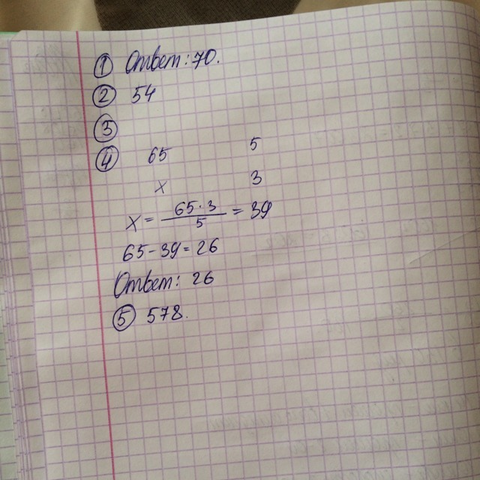 ① Ответ: 70.
② 54
③
④ 65 5
x 3
x = 65·3/5 = 39
65-39=26
Ответ: 26
⑤ 578.